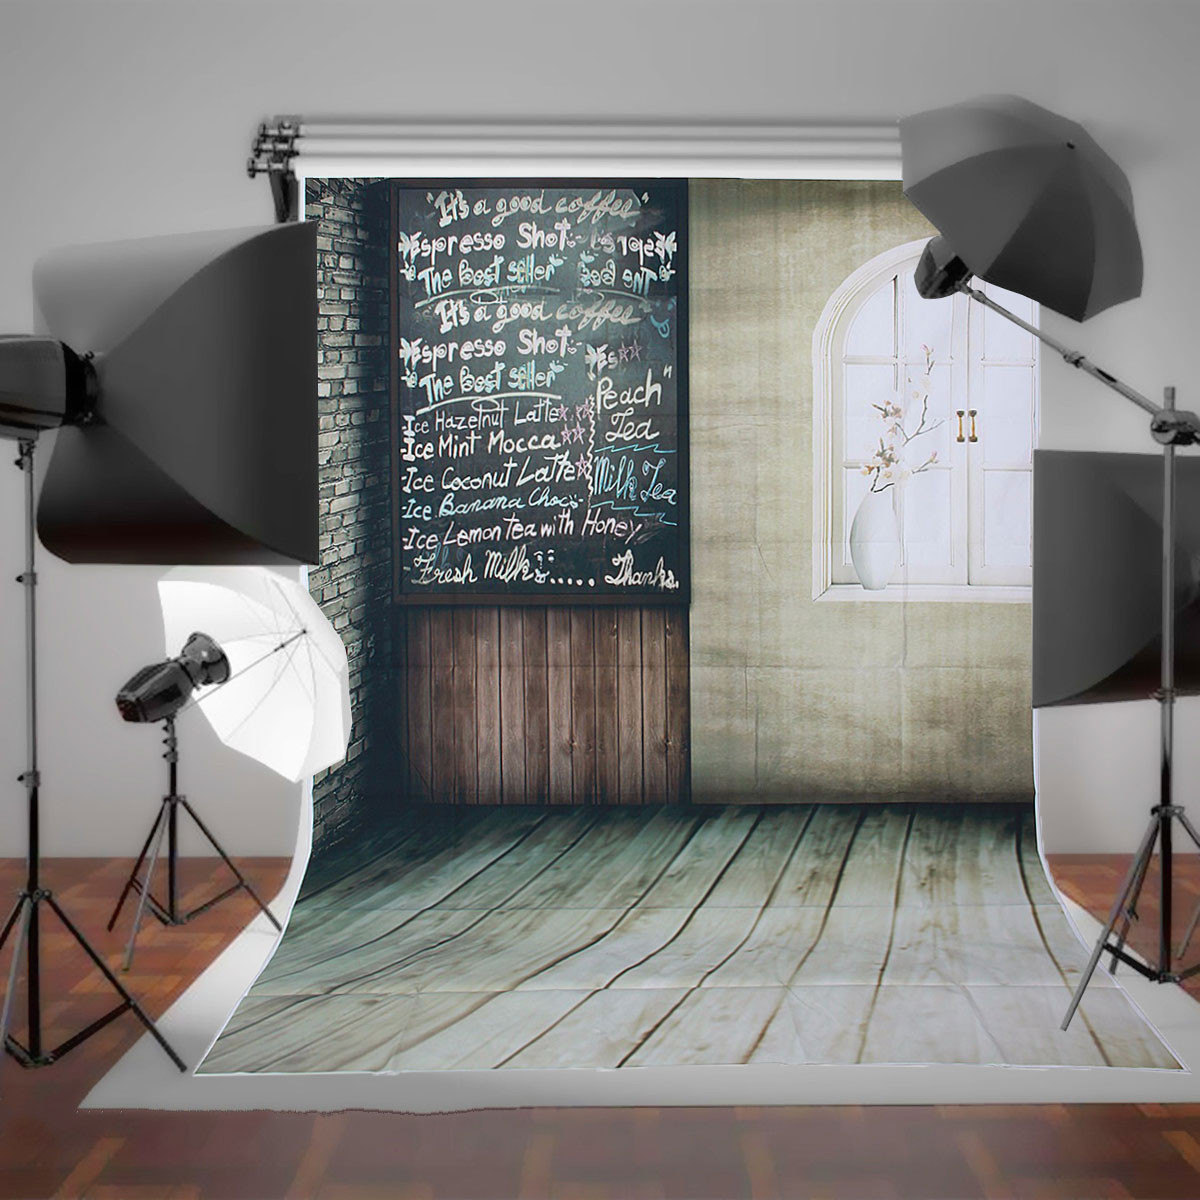 "It's a good coffee"
Espresso Shot
The Best seller
It's a good coffee
Espresso Shot
Es
The Best seller
Peach"
Tea
Ice Hazelnut Latte
-Ice Mint Mocca
-Ice Coconut Latte
Milk Tea
-Ice Banana Choc
-Ice Lemon tea with Honey
Fresh Milk..... Thanks.